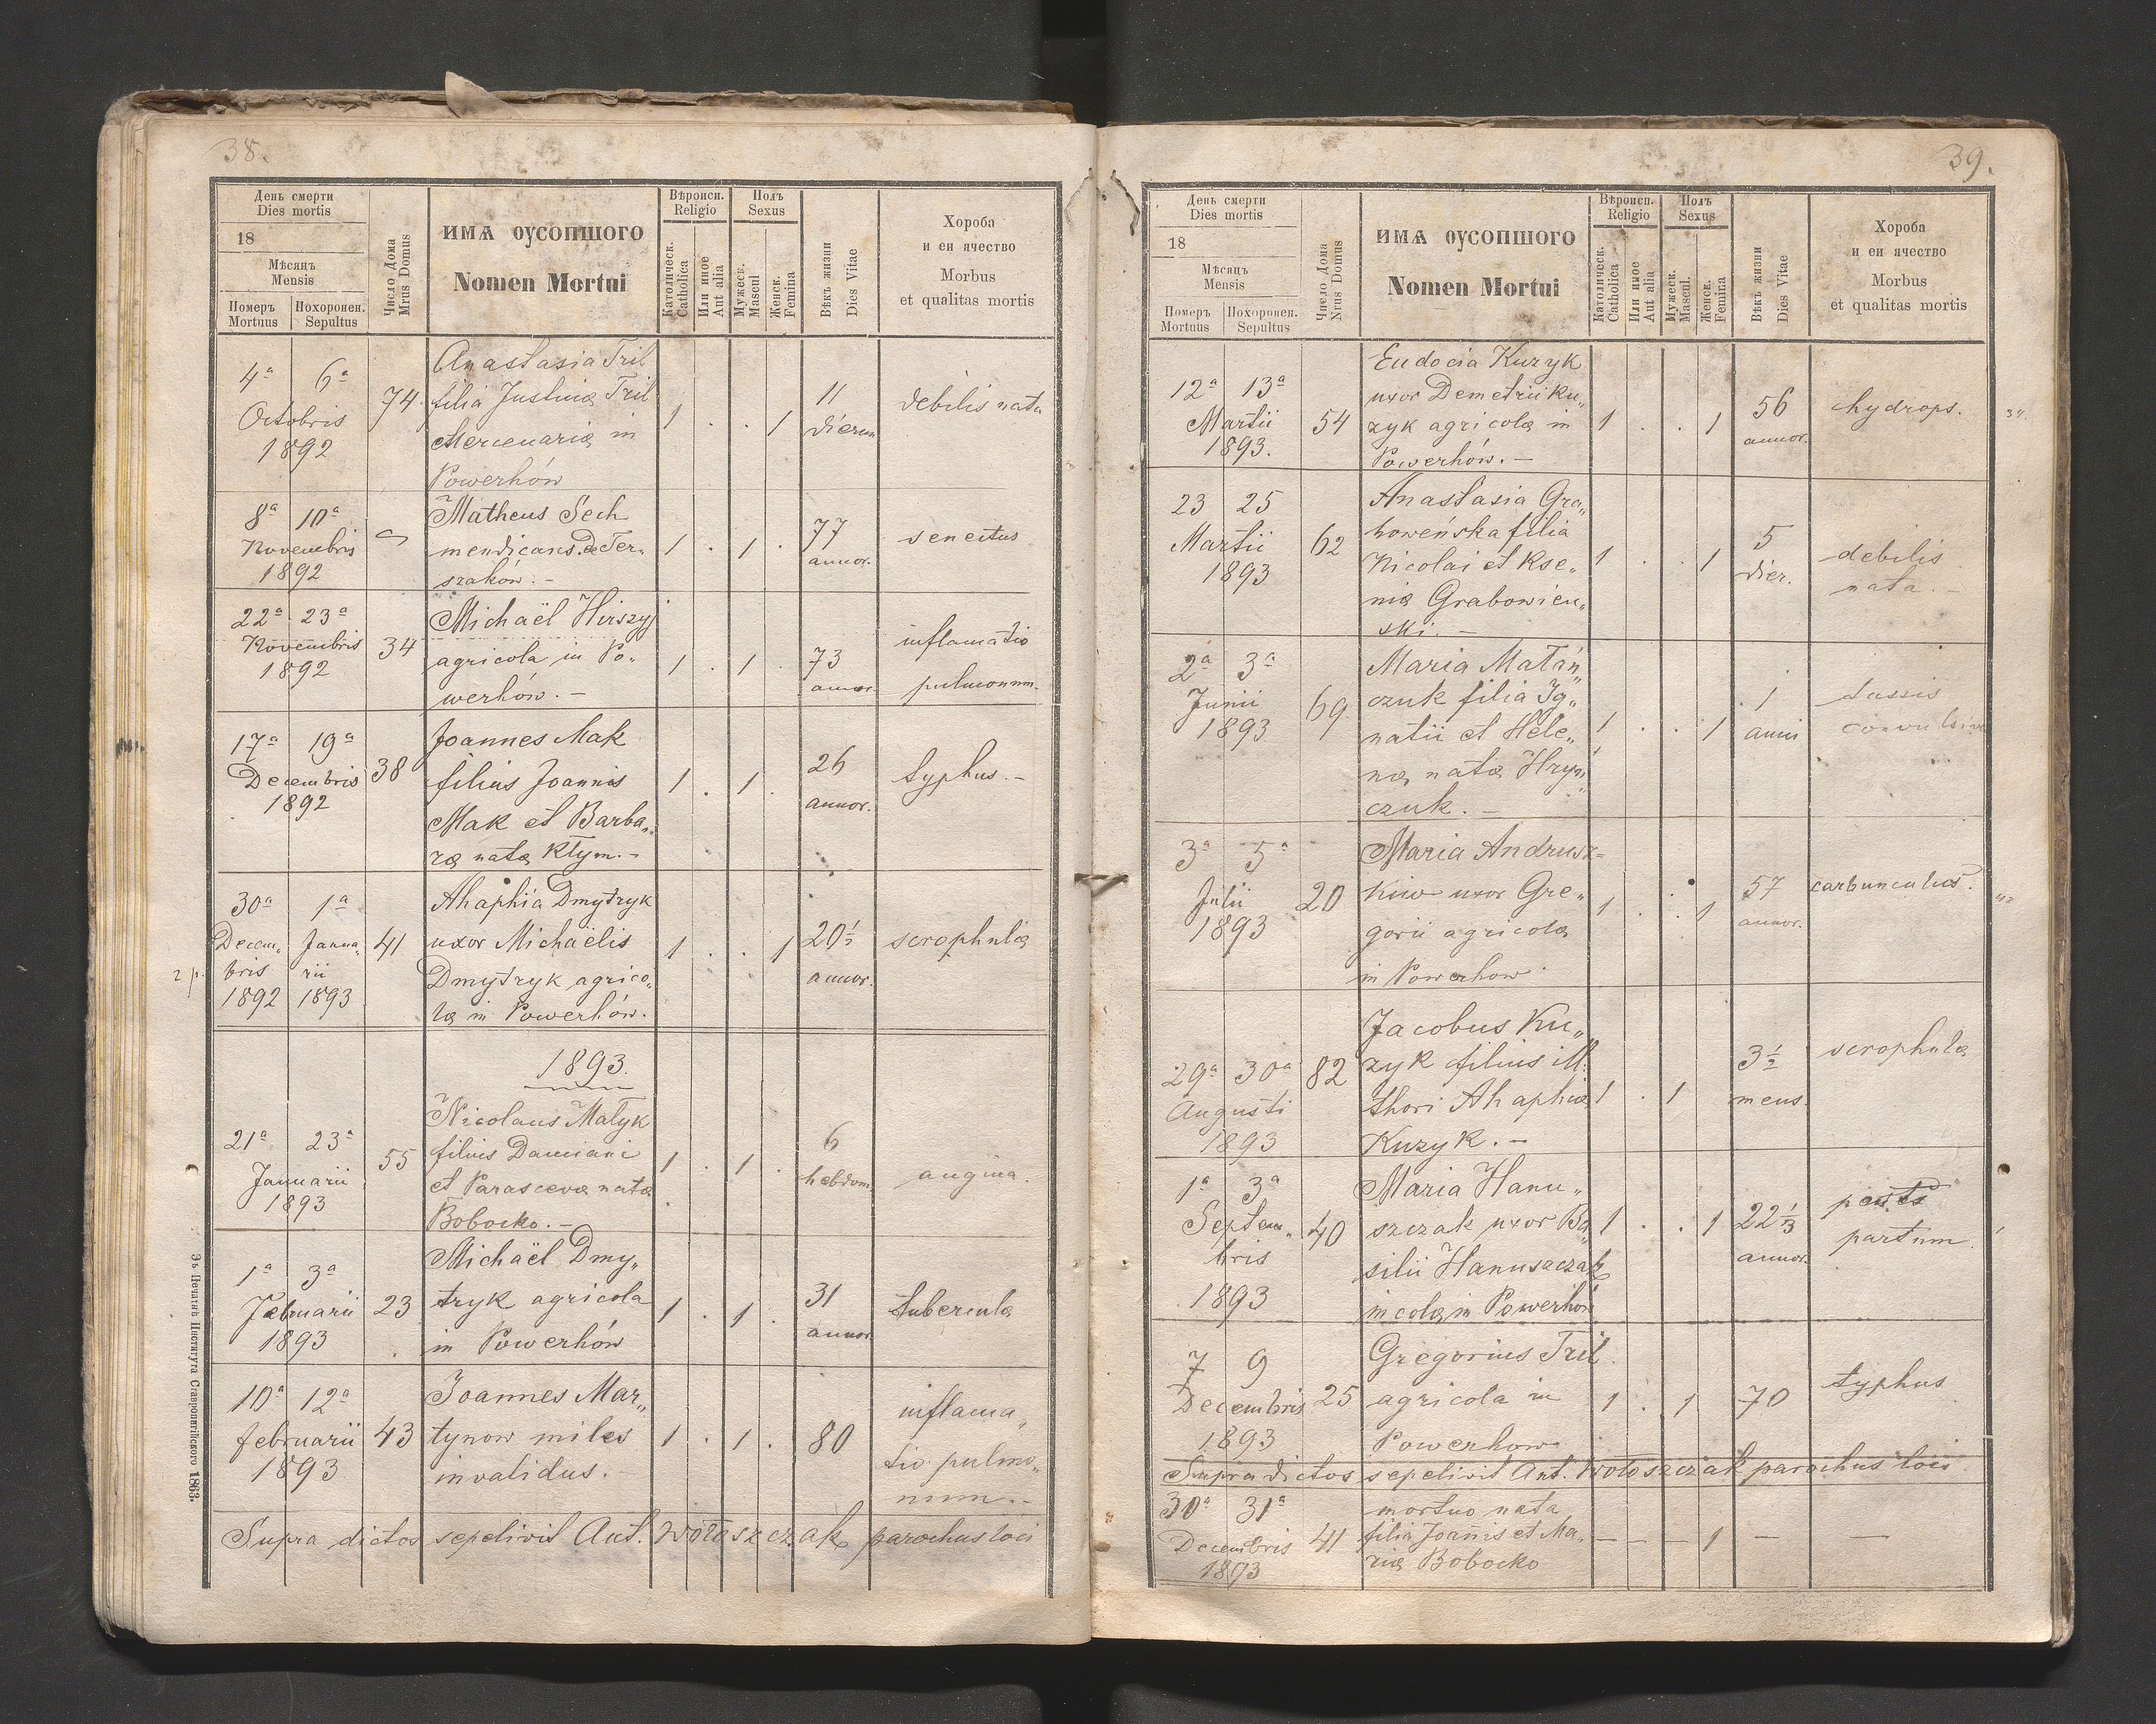 38.
День смерти
Dies mortis
18
Мѣсяцъ
Mensis
Померъ
Mortuus
Похоронен.
Sepultus
Число Дома
Mrus Domus
ИМѦ ОУСОПШОГО
Nomen Mortui
Вѣроисп.
Religio
Католическ.
Catholica
Или иное
Aut alia
Полъ
Sexus
Мужеск.
Mascul
Женск.
Femina
Вѣкъ жизни
Dies Vitae
Хороба
и еи ячество
Morbus
et qualitas mortis
4ª 6ª
Octobris
1892
74.
Anastasia Tril
filia Justinæ Tril
Mercenariæ in
Powerhów
1 . . 1
11
dierum
debilis nata
8ª 10ª
Novembris
1892
Matheus Sech
mendicans. de Ter„
szaków. –
1 . 1 .
77
annor.
senectus
22ª 23ª
Novembris
1892
34
Michaël Hirszyj
agricola in Po„
werhów. –
1 . 1 .
73
annor.
inflamatio
pulmonum.
17ª 19ª
Decembris
1892
38
Joannes Mak
filius Joannis
Mak et Barba„
ræ natæ Kłym. –
1 . 1 .
26
annor.
typhus. –
30ª 1ª
Decem„ Janua„
bris rii
1892 1893
2 p.
41
Ahaphia Dmytryk
uxor Michaëlis
Dmytryk agrico„
læ in Powerhów.
1 . . 1
20½
annor.
scrophulæ
1893.
21ª 23ª
Januarii
1893
55
Nicolaus Matyk
filius Damiani
et Parascevæ natæ
Bobocko. –
1 . 1 .
6
hebdom.
angina.
1ª 3ª
Februarii
1893
23
Michaël Dmy„
tryk agricola
in Powerhów
1 . 1 .
31
annor.
tubercula
10ª 12ª
februarii
1893
43
Joannes Mar„
tynow miles
invalidus.
1 . 1 .
80
inflama„
tio pulmo„
num. –
Supra dictos sepelivit Ant. Wołoszczak parochus loci
Зъ Печатнѣ Института Ставропигійского 1863.
39.
День смерти
Dies mortis
18
Мѣсяцъ
Mensis
Померъ
Mortuus
Похоронен.
Sepultus
Число Дома
Nrus Domus
ИМѦ ОУСОПШОГО
Nomen Mortui
Вѣроисп.
Religio
Католическ.
Catholica
Или иное
Aut alia
Полъ
Sexus
Мужеск.
Mascul.
Женск.
Femina
Вѣкъ жизни
Dies Vitae
Хороба
и еи ячество
Morbus
et qualitas mortis
12ª 13ª
Martii
1893.
54
Eudocia Kuzyk
uxor Demetrii Ku„
zyk agricolæ in
Powerhów. –
1 . . 1
56
annor.
hydrops.
23 25
Martii
1893
62
Anastasia Gra„
boweńska filia
Nicolai et Kse„
niæ Grabowień„
ski. –
1 . . 1
5
dier.
debilis
nata. –
2ª 3ª
Junii
1893
69
Maria Matań„
czuk filia Ig„
natii et Hele„
næ natæ Hryń
czuk. –
1 . . 1
1
anni
tussis
convulsiva
3ª 5ª
Julii
1893
20
Maria Andrusz=
kiw uxor Gre„
gorii agricolæ
in Powerhow
1 . . 1
57
annor.
carbunculus.
29ª 30ª
Augusti
1893
82
Jacobus Ku„
zyk filius ill:
thori Ahaphiæ
Kuzyk. –
1 . 1
3½
mens.
scrophulæ
1ª 3ª
Septem„
bris
1893
40
Maria Hanu„
szczak uxor Ba
silii Hanuszczak
incolæ in Powerhów
1 . . 1
22⅓
annor.
partum.
7 9
Decembris
1893
25
Gregorius Tril
agricola in
Powerhow
1 . 1
70
typhus
Supra dictos sepelivit Ant. Wołoszczak parochus loci
30ª 31ª
Decembris
1893
41
mortuo nata
filia Joannis et Ma„
riæ Bobocko
— — — 1 — —